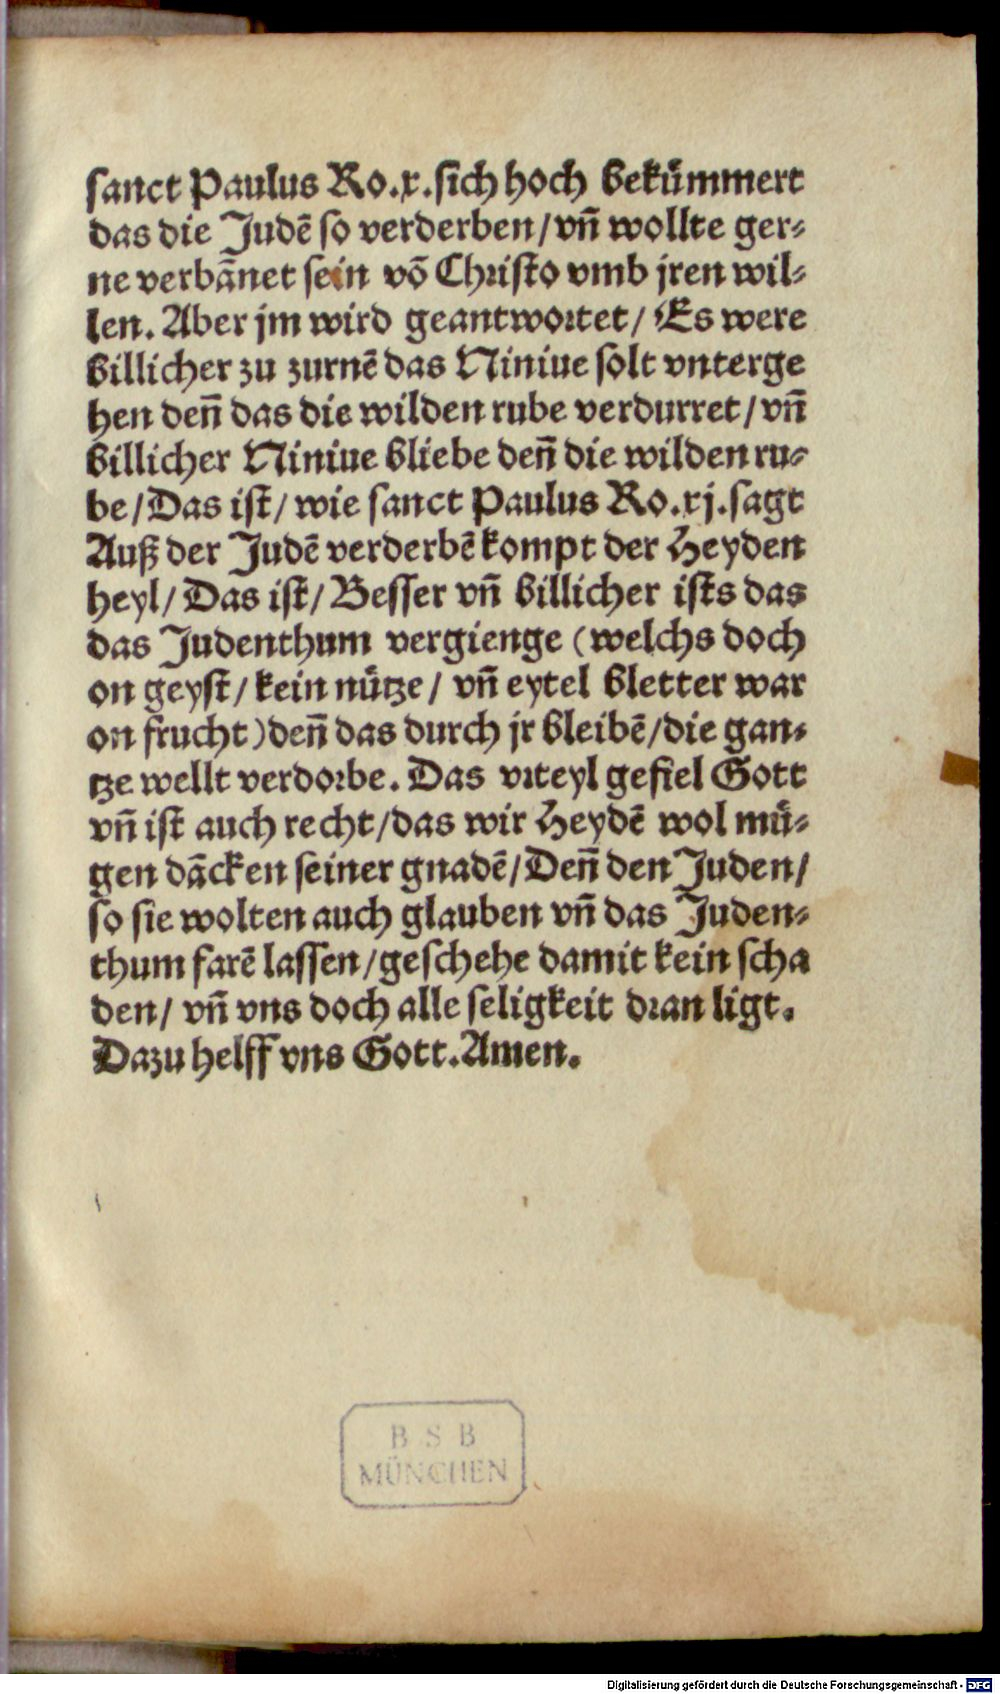 sanct Paulus Ro.x.sich hoch bekümmert
das die Judē so verderben/vn̄ wollte ger⸗
ne verbānet sein vō Christo vmb jren wil⸗
len. Aber jm wird geantwortet/ Es were
billicher zu zurnē das Niniue solt vnterge
hen den̄ das die wilden rube verdurret/vn̄
billicher Niniue bliebe den̄ die wilden ru⸗
be/Das ist/ wie sanct Paulus Ro.xj.sagt
Auß der Judē verderbē kompt der Heyden
heyl/ Das ist/ Besser vn̄ billicher ists das
das Judenthum vergienge (welchs doch
on geyst/ kein nütze/ vn̄ eytel bletter war
on frucht)den̄ das durch jr bleibē/die gan⸗
tze wellt verdorbe. Das vrteyl gefiel Gott
vn̄ ist auch recht/das wir Heydē wol mü⸗
gen dācken seiner gnadē/Den̄ den Juden/
so sie wolten auch glauben vn̄ das Juden⸗
thum farē lassen/geschehe damit kein scha
den/ vn̄ vns doch alle seligkeit dran ligt.
Dazu helff vns Gott.Amen.
B S B
MÜNCHEN
Digitalisierung gefördert durch die Deutsche Forschungsgemeinschaft - DFG